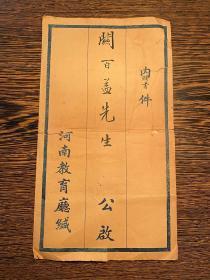 内件
關百益先生 公啟
河南教育廳緘